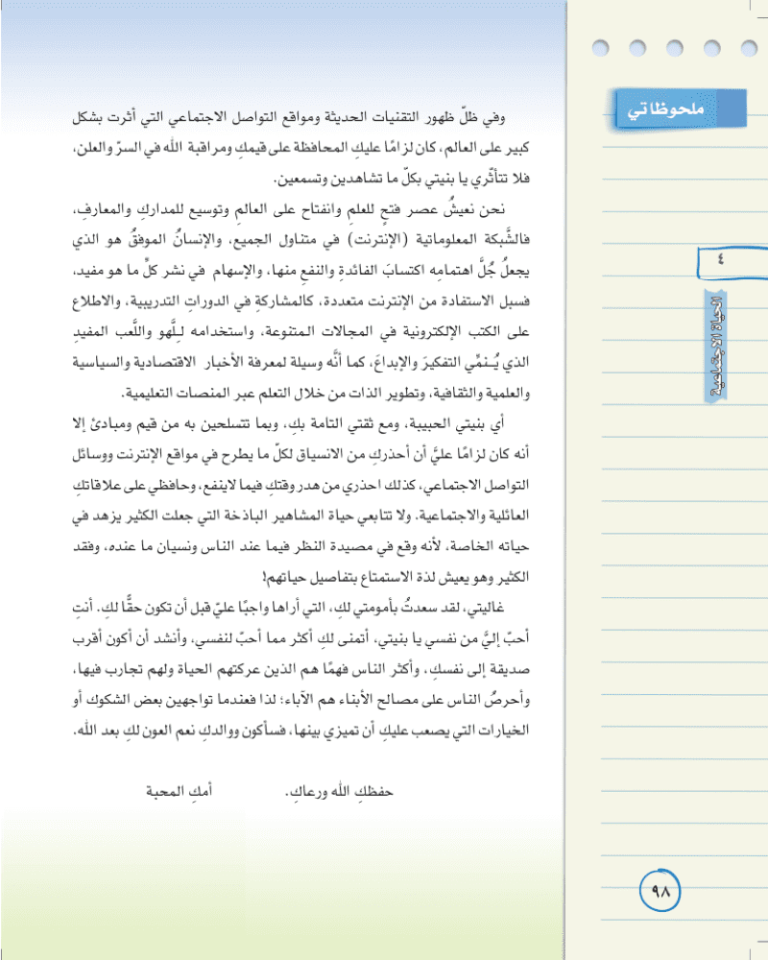 ملحوظاتي
٤
الحياة الاجتماعية
وفي ظلّ ظهور التقنيات الحديثة ومواقع التواصل الاجتماعي التي أثرت بشكل
كبير على العالم، كان لزامًا عليكِ المحافظة على قيمكِ ومراقبة الله في السرّ والعلن،
فلا تتأثّري يا بنيتي بكلّ ما تشاهدين وتسمعين.
نحن نعيشُ عصر فتحٍ للعلمِ وانفتاح على العالمِ وتوسيع للمداركِ والمعارفِ،
فالشَّبكة المعلوماتية (الإنترنت) في متناول الجميع، والإنسانُ الموفقُ هو الذي
يجعلُ جُلَّ اهتمامِه اكتسابَ الفائدةِ والنفعِ منها، والإسهام في نشر كلِّ ما هو مفيد،
فسبل الاستفادة من الإنترنت متعددة، كالمشاركةِ في الدوراتِ التدريبية، والاطلاع
على الكتب الإلكترونية في المجالات المتنوعة، واستخدامه لـِلَّهو واللَّعب المفيدِ
الذي يُـنمِّي التفكيرَ والإبداعَ، كما أنَّه وسيلة لمعرفة الأخبار الاقتصادية والسياسية
والعلمية والثقافية، وتطوير الذات من خلال التعلم عبر المنصات التعليمية.
أي بنيتي الحبيبة، ومع ثقتي التامة بكِ، وبما تتسلحين به من قيم ومبادئ إلا
أنه كان لزامًا عليَّ أن أحذركِ من الانسياق لكلّ ما يطرح في مواقع الإنترنت ووسائل
التواصل الاجتماعي، كذلك احذري من هدر وقتكِ فيما لاينفع، وحافظي على علاقاتكِ
العائلية والاجتماعية. ولا تتابعي حياة المشاهير الباذخة التي جعلت الكثير يزهد في
حياته الخاصة، لأنه وقع في مصيدة النظر فيما عند الناس ونسيان ما عنده، وفقد
الكثير وهو يعيش لذة الاستمتاع بتفاصيل حياتهم!
غاليتي، لقد سعدتُ بأمومتي لكِ، التي أراها واجبًا عليّ قبل أن تكون حقًّا لكِ. أنتِ
أحبّ إليَّ من نفسي يا بنيتي، أتمنى لكِ أكثر مما أحبّ لنفسي، وأنشد أن أكون أقرب
صديقة إلى نفسكِ، وأكثر الناس فهمًا هم الذين عركتهم الحياة ولهم تجارب فيها،
وأحرصُ الناس على مصالح الأبناء هم الآباء؛ لذا فعندما تواجهين بعض الشكوك أو
الخيارات التي يصعب عليكِ أن تميزي بينها، فسأكون ووالدكِ نعم العون لكِ بعد الله.
حفظكِ الله ورعاكِ. أمكِ المحبة
٩٨